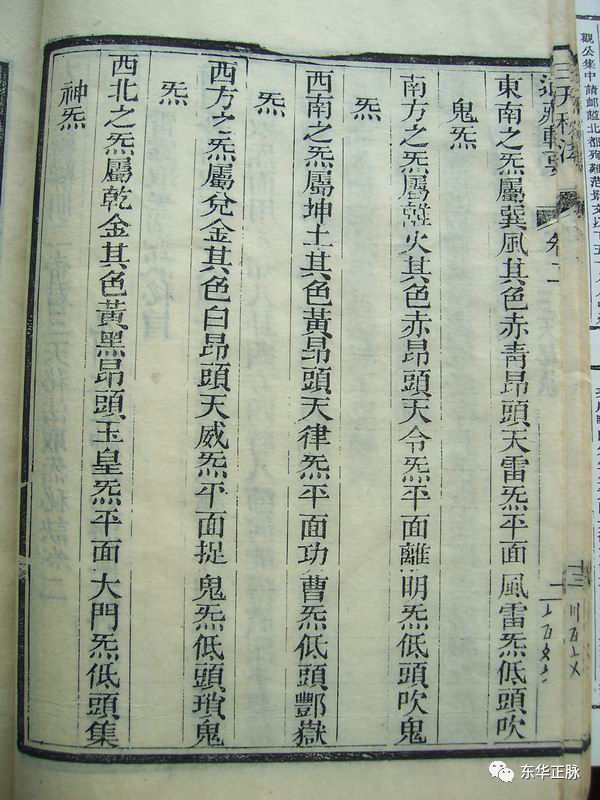 東南之炁屬巽風其色赤青昂頭天雷炁平面風雷炁低頭吹
鬼炁
南方之炁屬離火其色赤昂頭天令炁平面離明炁低頭吹鬼
炁
西南之炁屬坤土其色黃昂頭天律炁平面功曹炁低頭酆嶽
炁
西方之炁屬兌金其色白昂頭天威炁平面捉鬼炁低頭瑣鬼
炁
西北之炁屬乾金其色黃黑昂頭玉皇炁平面大門炁低頭集
神炁
道藏輯要
卷二
东华正脉